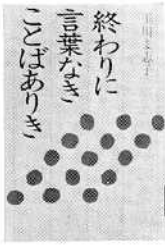 終わりに
言葉なき
ことばありき